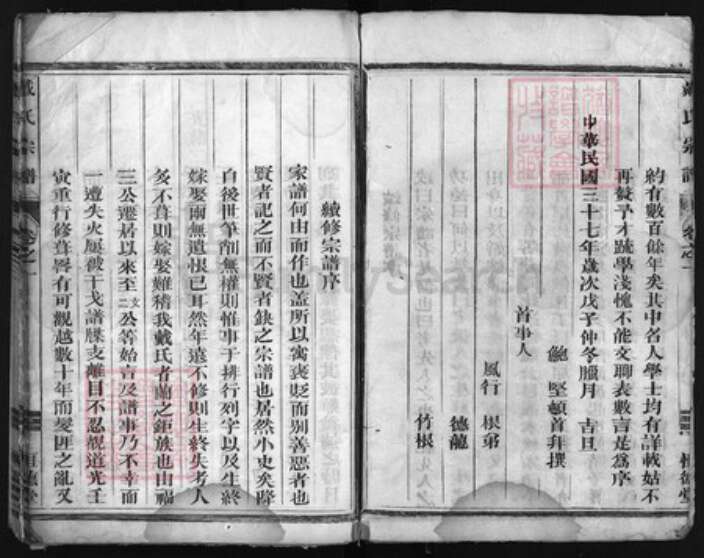 戴氏宗譜
約有數百餘年矣其中名人學士均有詳載姑不
再贅予才疎學淺愧不能文聊表數言是爲序
中華民國三十七年歲次戊子仲冬臘月 吉旦
鮑 堅頓首拜撰
首事人
風行 根弟
德龍
竹根
續修宗譜序
家譜何由而作也蓋所以寓褒貶而別善惡者也
賢者記之而不賢者缺之宗譜也居然小史矣降
自後世筆削無權則惟事于排行列字以及生終
嫁娶兩無遺恨已耳然年遠不修則生終失考人
多不葺則嫁娶難稽我戴氏者蘭之鉅族也由福
三公遷居以來至二文公等始言及譜事乃不幸而
一遭失火屋被干戈譜牒支離目不忍覩道光壬
寅重行修葺唇有可觀越數十年而變匪之亂又
戴氏宗譜 卷之一